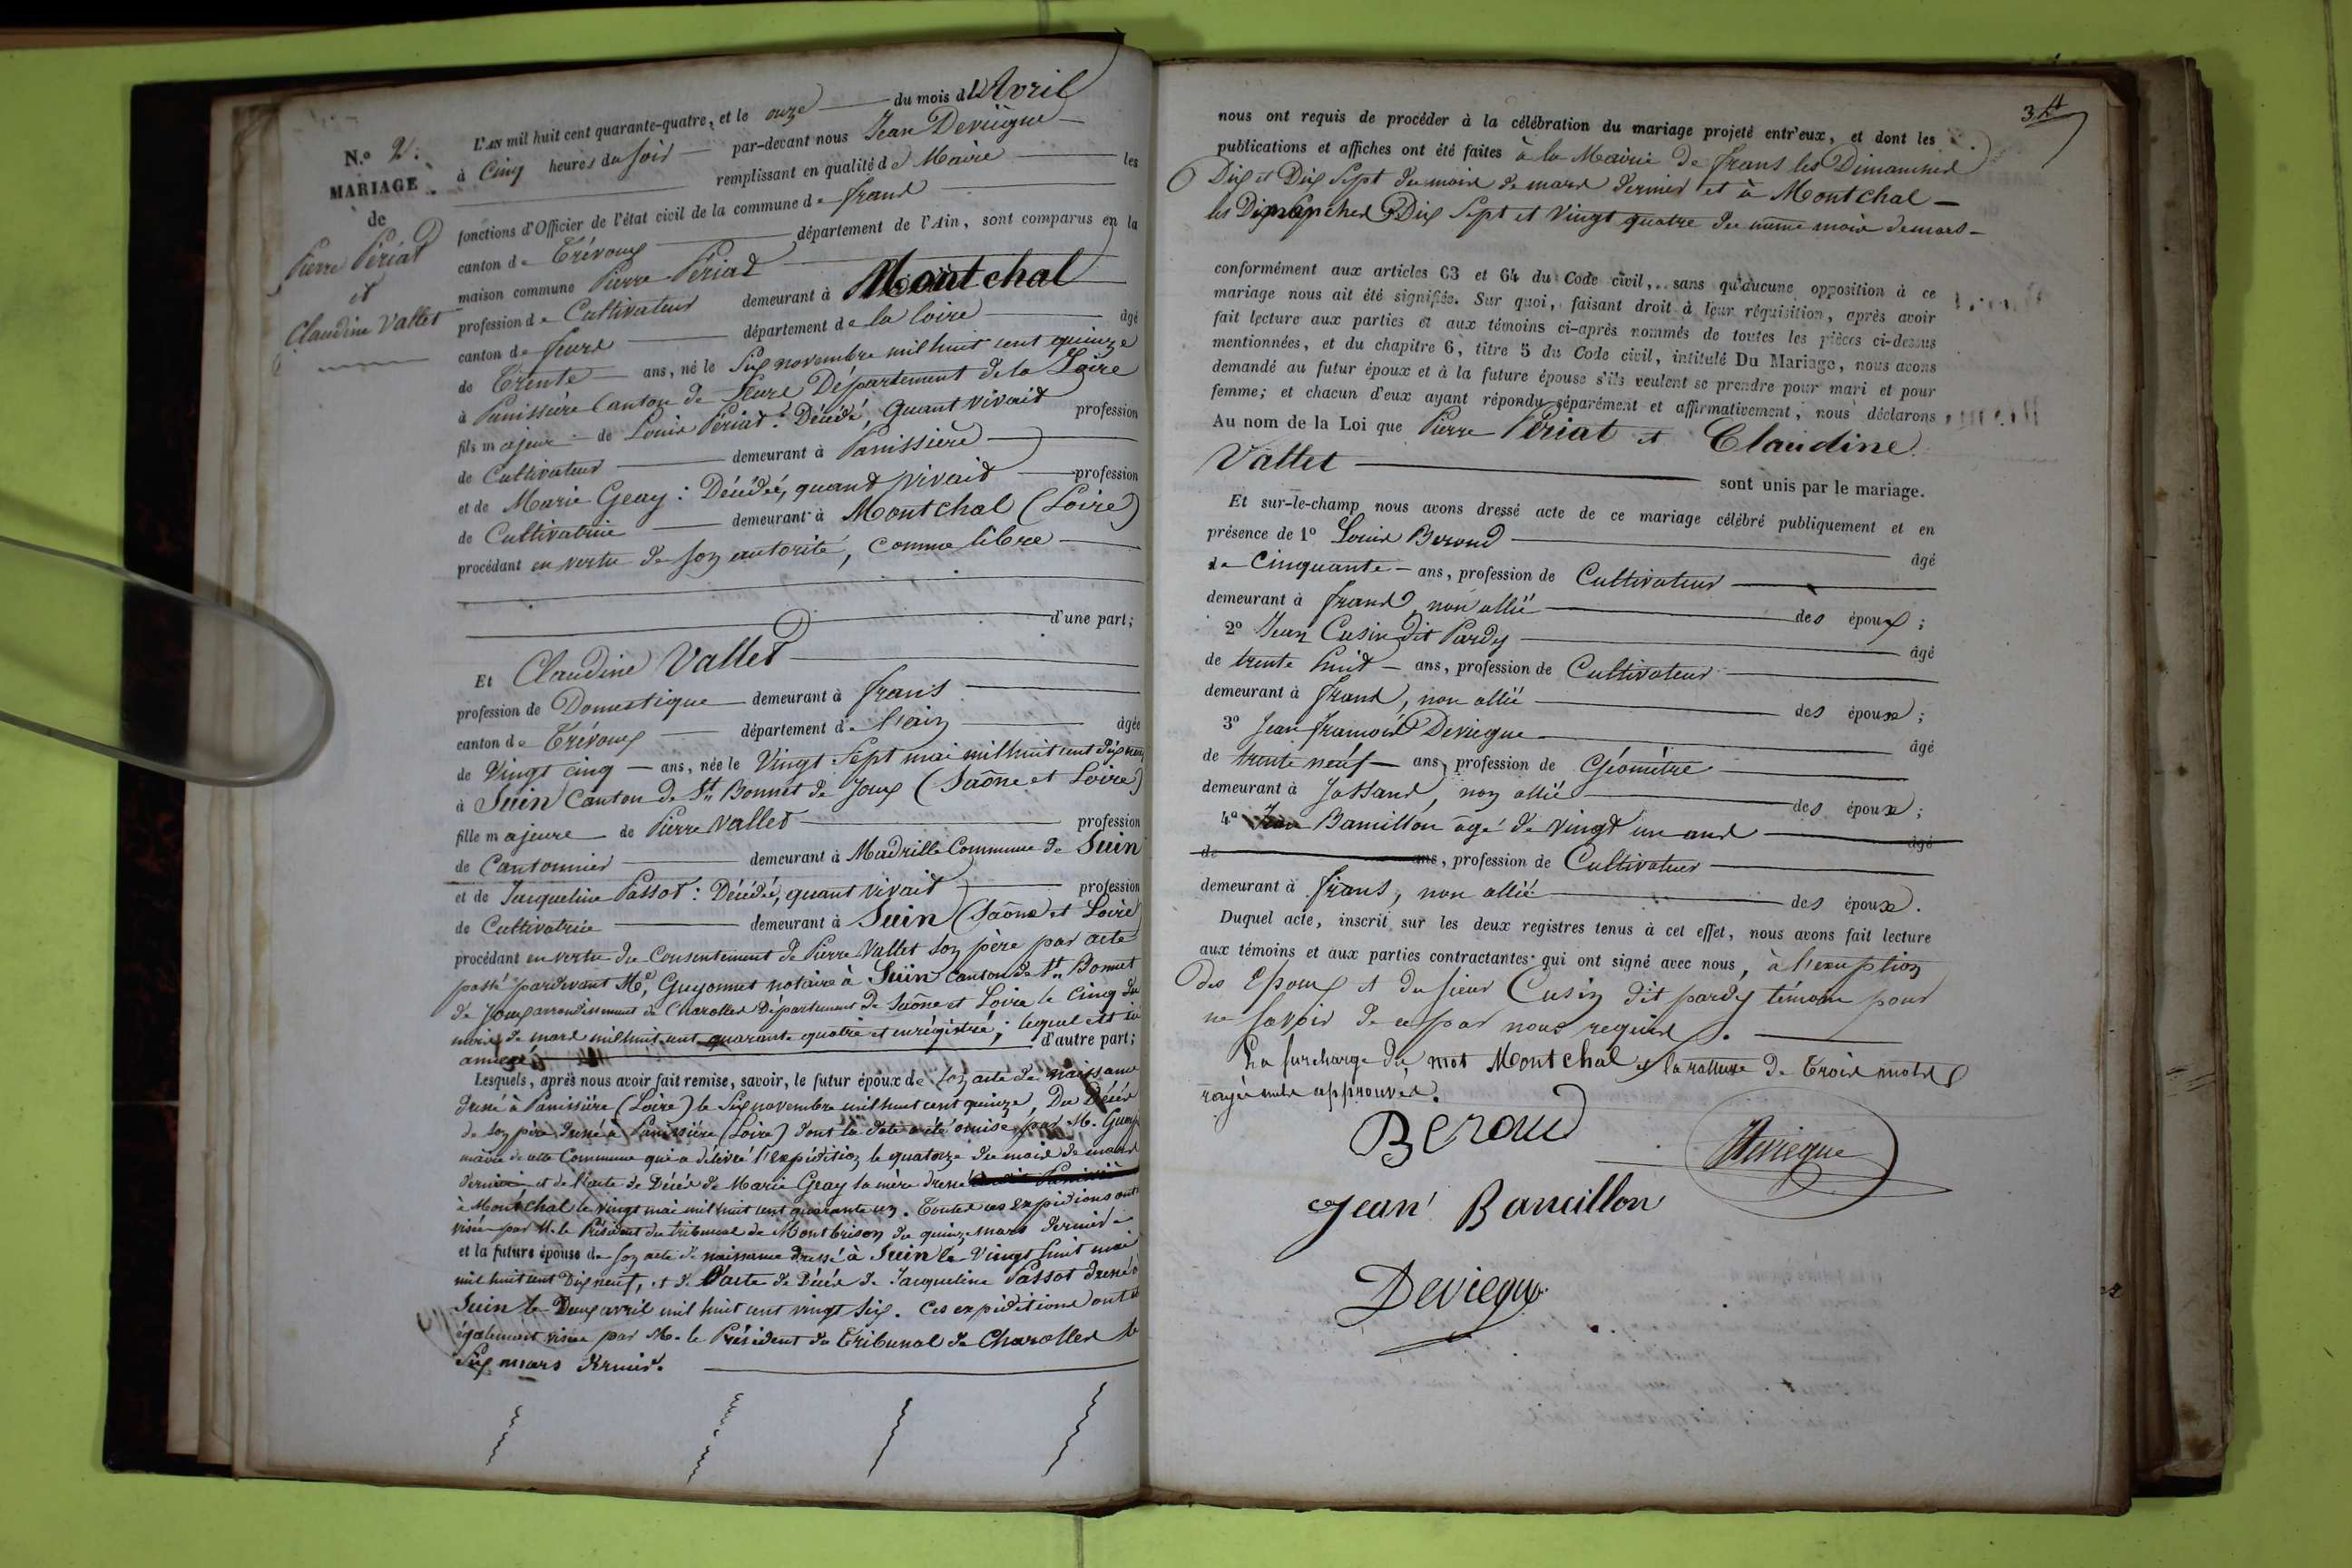 N.º 2.
MARIAGE
de
Pierre Périat
et
Claudine Vallet
L'AN mil huit cent quarante-quatre, et le onze du mois d'Avril
à Cinq heures du soir par-devant nous Jean Deviègue
remplissant en qualité de Maire les
fonctions d'Officier de l'état civil de la commune de frans
canton de Trévoux département de l'Ain, sont comparus en la
maison commune Pierre Périat
profession de Cultivateur demeurant à Montchal
canton de feurs département de la loire âgé
de Trente ans, né le Six novembre mil huit cent quinze
à Panissière Canton de Feurs Département de la Loire
fils majeur de Louis Périat : Décédé, Quant vivait profession
de Cultivateur demeurant à Panissière
et de Marie Geay : Décédée, quand vivait profession
de Cultivatrice demeurant à Montchal (Loire)
procédant en vertu de son autorité, comme libre
d'une part;
Et Claudine Vallet
profession de Domestique demeurant à frans
canton de Trévoux département de l'ain âgée
de Vingt cinq ans, née le Vingt Sept mai mil huit cent dix neuf
à Suin Canton de St Bonnet de Joux (Saône et Loire)
fille majeure de Pierre Vallet profession
de Cantonnier demeurant à Madrille Commune de Suin
et de Jacqueline Passot : Décédée, quant vivait profession
de Cultivatrice demeurant à Suin (Saône et Loire)
procédant en vertu du Consentement de Pierre Vallet son père par acte
passé pardevant Me Guyonnet notaire à Suin canton de St Bonnet
de Joux arrondissement de Charolles Département de Saône et Loire le Cinq du
mois de mars mil huit cent quarante quatre et enrégistré; lequel est ici
annexé d'autre part;
Lesquels, après nous avoir fait remise, savoir, le futur époux de son acte de naissance
dressé à Panissière (Loire) le Six novembre mil huit cent quinze, Du Décès
de son père dressé à Panissière (Loire) dont la date a été omise par M.
maire de cette Commune qui a délivré l'expédition le quatorze du mois de mars
dernier et de l'acte de Décès de Marie Geay sa mère dressé
à Montchal le vingt mai mil huit cent quarante un. Toutes ces expéditions ont
visées par M. le Président du tribunal de Montbrison du quinze mars dernier
et la future épouse de son acte de naissance dressé à Suin le Vingt huit mai
mil huit cent Dix neuf, et de l'acte de Décès de Jacqueline Passot dressé à
Suin le Deux avril mil huit cent vingt Six. Ces expéditions ont été
également visées par M. le Président du Tribunal de Charolles le
Six mars dernier.
34
nous ont requis de procéder à la célébration du mariage projeté entr'eux, et dont les
publications et affiches ont été faites à la Mairie de frans les Dimanches
Dix et Dix Sept du mois de mars dernier et à Montchal
les Dimanches Dix Sept et Vingt quatre du même mois de mars
conformément aux articles 63 et 64 du Code civil, sans qu'aucune opposition à ce
mariage nous ait été signifiée. Sur quoi, faisant droit à leur réquisition, après avoir
fait lecture aux parties et aux témoins ci-après nommés de toutes les pièces ci-dessus
mentionnées, et du chapitre 6, titre 5 du Code civil, intitulé Du Mariage, nous avons
demandé au futur époux et à la future épouse s'ils veulent se prendre pour mari et pour
femme; et chacun d'eux ayant répondu séparément et affirmativement, nous déclarons
Au nom de la Loi que Pierre Périat et Claudine
Vallet sont unis par le mariage.
Et sur-le-champ nous avons dressé acte de ce mariage célébré publiquement et en
présence de 1º Louis Beroud âgé
de Cinquante ans, profession de Cultivateur
demeurant à frans, non allié des époux;
2º Jean Cusin dit Pardy âgé
de trente huit ans, profession de Cultivateur
demeurant à frans, non allié des époux;
3º Jean françois Deviegue âgé
de trente neuf ans, profession de Géomètre
demeurant à Jassans, non allié des époux;
4º Jean Bamillon âgé de vingt un ans âgé
de ans, profession de Cultivateur
demeurant à frans, non allié des époux.
Duquel acte, inscrit sur les deux registres tenus à cet effet, nous avons fait lecture
aux témoins et aux parties contractantes qui ont signé avec nous, à l'exception
des Epoux et du sieur Cusin dit pardy témoin pour
ne savoir de ce par nous requis.
La surcharge du mot Montchal et la rature de Trois mots
rayés nuls approuvés.
Beroud
Deviegue
Jean Bamillon
Deviegue